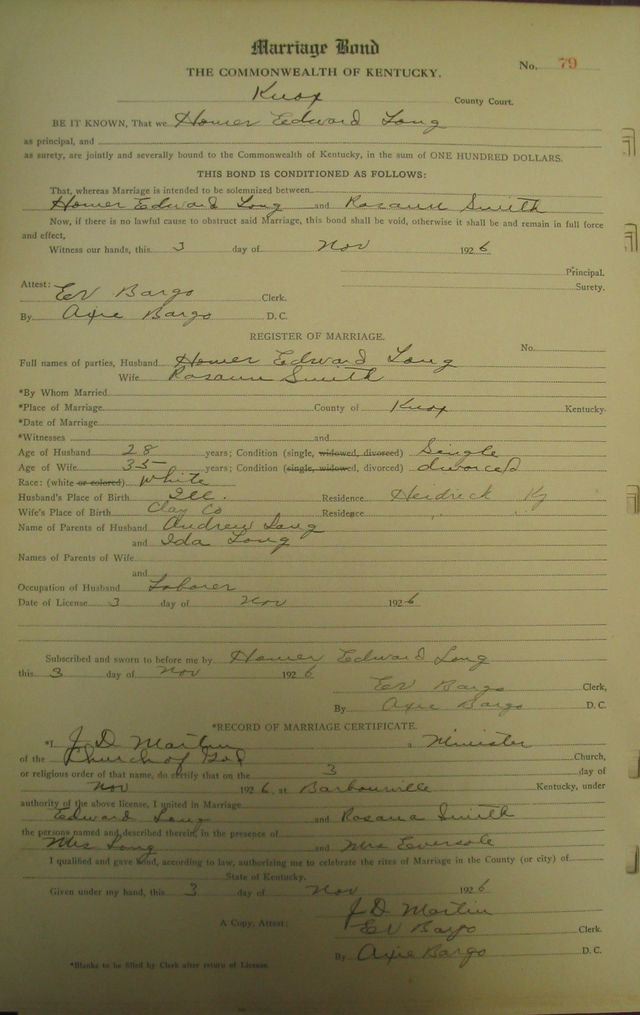 Marriage Bond
No. 79
THE COMMONWEALTH OF KENTUCKY.
Knox County Court.
BE IT KNOWN, That we Homer Edward Long
as principal, and
as surety, are jointly and severally bound to the Commonwealth of Kentucky, in the sum of ONE HUNDRED DOLLARS.
THIS BOND IS CONDITIONED AS FOLLOWS:
That, whereas Marriage is intended to be solemnized between
Homer Edward Long and Rosann Smith
Now, if there is no lawful cause to obstruct said Marriage, this bond shall be void, otherwise it shall be and remain in full force
and effect,
Witness our hands, this 3 day of Nov 1926
Principal.
Surety.
Attest:
EV Bargo Clerk.
By Axie Bargo D. C.
REGISTER OF MARRIAGE.
No.
Full names of parties, Husband Homer Edward Long
Wife Rosann Smith
*By Whom Married
*Place of Marriage County of Knox Kentucky.
*Date of Marriage
*Witnesses and
Age of Husband 28 years; Condition (single, widowed, divorced) Single
Age of Wife 35 years; Condition (single, widowed, divorced) divorced
Race: (white or colored) White
Husband's Place of Birth Ill. Residence Heidrick Ky
Wife's Place of Birth Clay Co Residence " "
Name of Parents of Husband Andrew Long
and Ida Long
Names of Parents of Wife
and
Occupation of Husband Laborer
Date of License 3 day of Nov 1926
Subscribed and sworn to before me by Homer Edward Long
this 3 day of Nov 1926
EV Bargo Clerk,
By Axie Bargo D. C.
*RECORD OF MARRIAGE CERTIFICATE.
*I J. D. Martin a Minister
of the Church of God Church,
or religious order of that name, do certify that on the 3 day of
Nov 1926, at Barbourville Kentucky, under
authority of the above license, I united in Marriage
Edward Long and Rosana Smith
the persons named and described therein, in the presence of
Mrs Long and Mrs Eversole
I qualified and gave bond, according to law, authorizing me to celebrate the rites of Marriage in the County (or city) of
State of Kentucky.
Given under my hand, this 3 day of Nov 1926
J D Martin
A Copy, Attest: EV Bargo Clerk.
By Axie Bargo D. C.
*Blanks to be filled by Clerk after return of License.